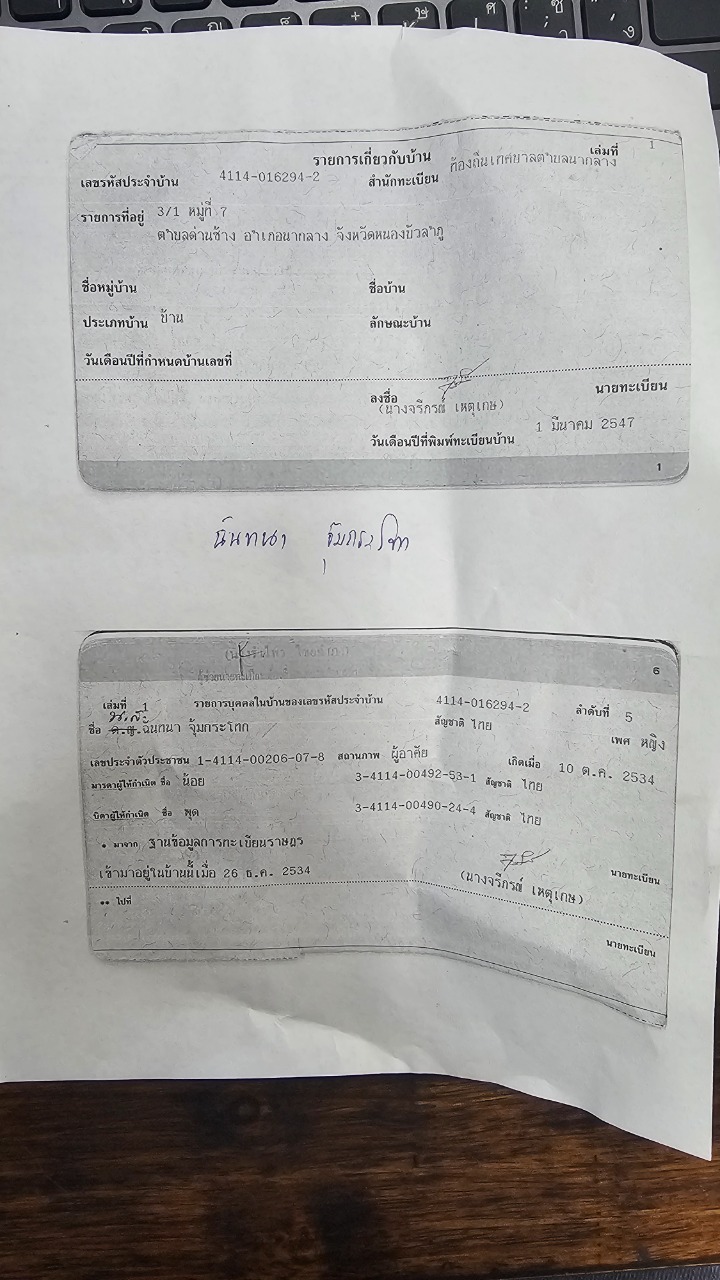 รายการเกี่ยวกับบ้าน เล่มที่ 1
เลขรหัสประจำบ้าน 4114-016294-2 สำนักทะเบียน ท้องถิ่นเทศบาลตำบลนากลาง
รายการที่อยู่ 3/1 หมู่ที่ 7
ตำบลด่านช้าง อำเภอนากลาง จังหวัดหนองบัวลำภู
ชื่อหมู่บ้าน ชื่อบ้าน
ประเภทบ้าน บ้าน ลักษณะบ้าน
วันเดือนปีที่กำหนดบ้านเลขที่
ลงชื่อ นายทะเบียน
(นางจรีภรณ์ เหตุเกษ)
วันเดือนปีที่พิมพ์ทะเบียนบ้าน 1 มีนาคม 2547
1
ฉันทนา จุ้มกระโทก
6
เล่มที่ 1 รายการบุคคลในบ้านของเลขรหัสประจำบ้าน 4114-016294-2 ลำดับที่ 5
ชื่อ ด.ญ.ฉันทนา จุ้มกระโทก สัญชาติ ไทย เพศ หญิง
เลขประจำตัวประชาชน 1-4114-00206-07-8 สถานภาพ ผู้อาศัย เกิดเมื่อ 10 ต.ค. 2534
มารดาผู้ให้กำเนิด ชื่อ น้อย 3-4114-00492-53-1 สัญชาติ ไทย
บิดาผู้ให้กำเนิด ชื่อ พุด 3-4114-00490-24-4 สัญชาติ ไทย
* มาจาก ฐานข้อมูลการทะเบียนราษฎร
เข้ามาอยู่ในบ้านนี้เมื่อ 26 ธ.ค. 2534 นายทะเบียน
(นางจรีภรณ์ เหตุเกษ)
** ไปที่
นายทะเบียน